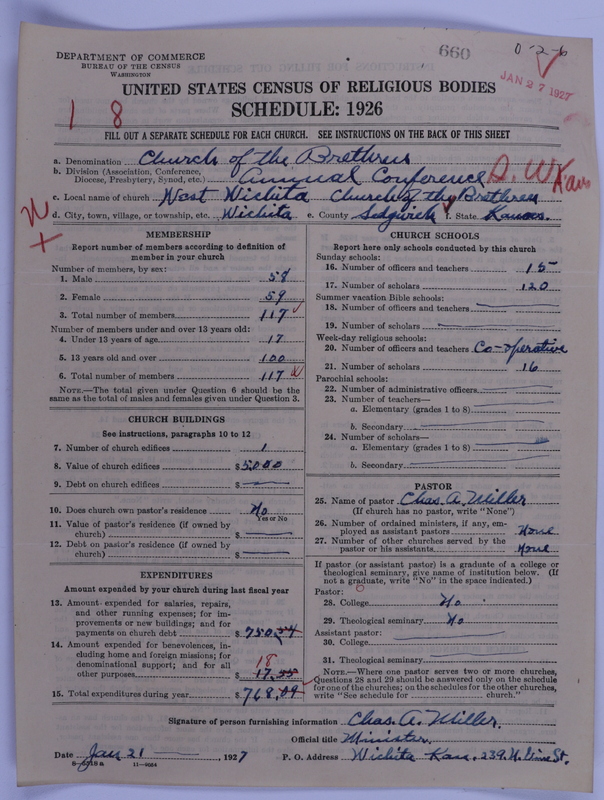 660
0-2-6
JAN 27 1927
DEPARTMENT OF COMMERCE
BUREAU OF THE CENSUS
WASHINGTON
UNITED STATES CENSUS OF RELIGIOUS BODIES
SCHEDULE: 1926
1 8
FILL OUT A SEPARATE SCHEDULE FOR EACH CHURCH. SEE INSTRUCTIONS ON THE BACK OF THIS SHEET
a. Denomination Church of the Brethren
b. Division (Association, Conference, Diocese, Presbytery, Synod, etc.) Annual Conference
c. Local name of church West Wichita Church of the Brethren
d. City, town, village, or township, etc. Wichita e. County Sedgwick f. State Kansas.
MEMBERSHIP
Report number of members according to definition of
member in your church
Number of members, by sex:
1. Male 58
2. Female 59
3. Total number of members 117
Number of members under and over 13 years old:
4. Under 13 years of age 17
5. 13 years old and over 100
6. Total number of members 117
NOTE.—The total given under Question 6 should be
same as the total of males and females given under Question 3.
CHURCH BUILDINGS
See instructions, paragraphs 10 to 12
7. Number of church edifices 1
8. Value of church edifices $5000
9. Debt on church edifices $
10. Does church own pastor's residence No
Yes or No
11. Value of pastor's residence (if owned by
church) $
12. Debt on pastor's residence (if owned by
church) $
EXPENDITURES
Amount expended by your church during last fiscal year
13. Amount expended for salaries, repairs,
and other running expenses; for im-
provements or new buildings; and for
payments on church debt $ 750.54
14. Amount expended for benevolences, in-
cluding home and foreign missions; for
denominational support; and for all
other purposes 18 17.55
15. Total expenditures during year $ 768.09
CHURCH SCHOOLS
Report here only schools conducted by this church
Sunday schools:
16. Number of officers and teachers 15
17. Number of scholars 120
Summer vacation Bible schools:
18. Number of officers and teachers
19. Number of scholars
Week-day religious schools:
20. Number of officers and teachers Co-operative
21. Number of scholars 16
Parochial schools:
22. Number of administrative officers
23. Number of teachers—
a. Elementary (grades 1 to 8)
b. Secondary
24. Number of scholars—
a. Elementary (grades 1 to 8)
b. Secondary
PASTOR
25. Name of pastor Chas. A. Miller
(If church has no pastor, write "None")
26. Number of ordained ministers, if any, em-
ployed as assistant pastors None
27. Number of other churches served by the
pastor or his assistants None
If pastor (or assistant pastor) is a graduate of a college or
theological seminary, give name of institution below. (If
not a graduate, write "No" in the space indicated.)
Pastor:
28. College No
29. Theological seminary No
Assistant pastor:
30. College
31. Theological seminary
NOTE.—Where one pastor serves two or more churches,
Questions 28 and 29 should be answered only on the schedule
for one of the churches; on the schedules for the other churches,
write "See schedule for church."
Signature of person furnishing information Chas. A. Miller.
Official title Minister.
Date Jan 21, 1927 P. O. Address Wichita Kan. 239 N.
8-5518 a 11-9054